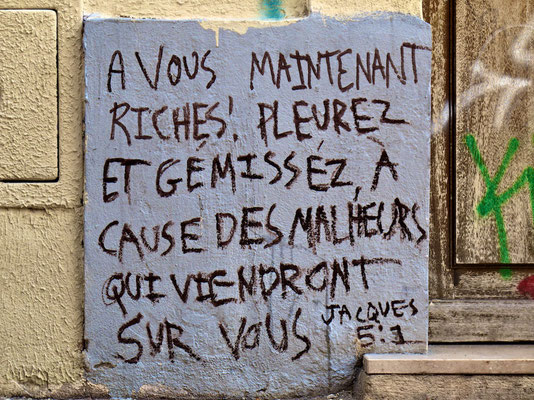 A VOUS MAINTENANT
RICHES! PLEUREZ
ET GÉMISSÉZ, À
CAUSE DES MALHEURS
QUI VIENDRONT
SUR VOUS JACQUES
5:1